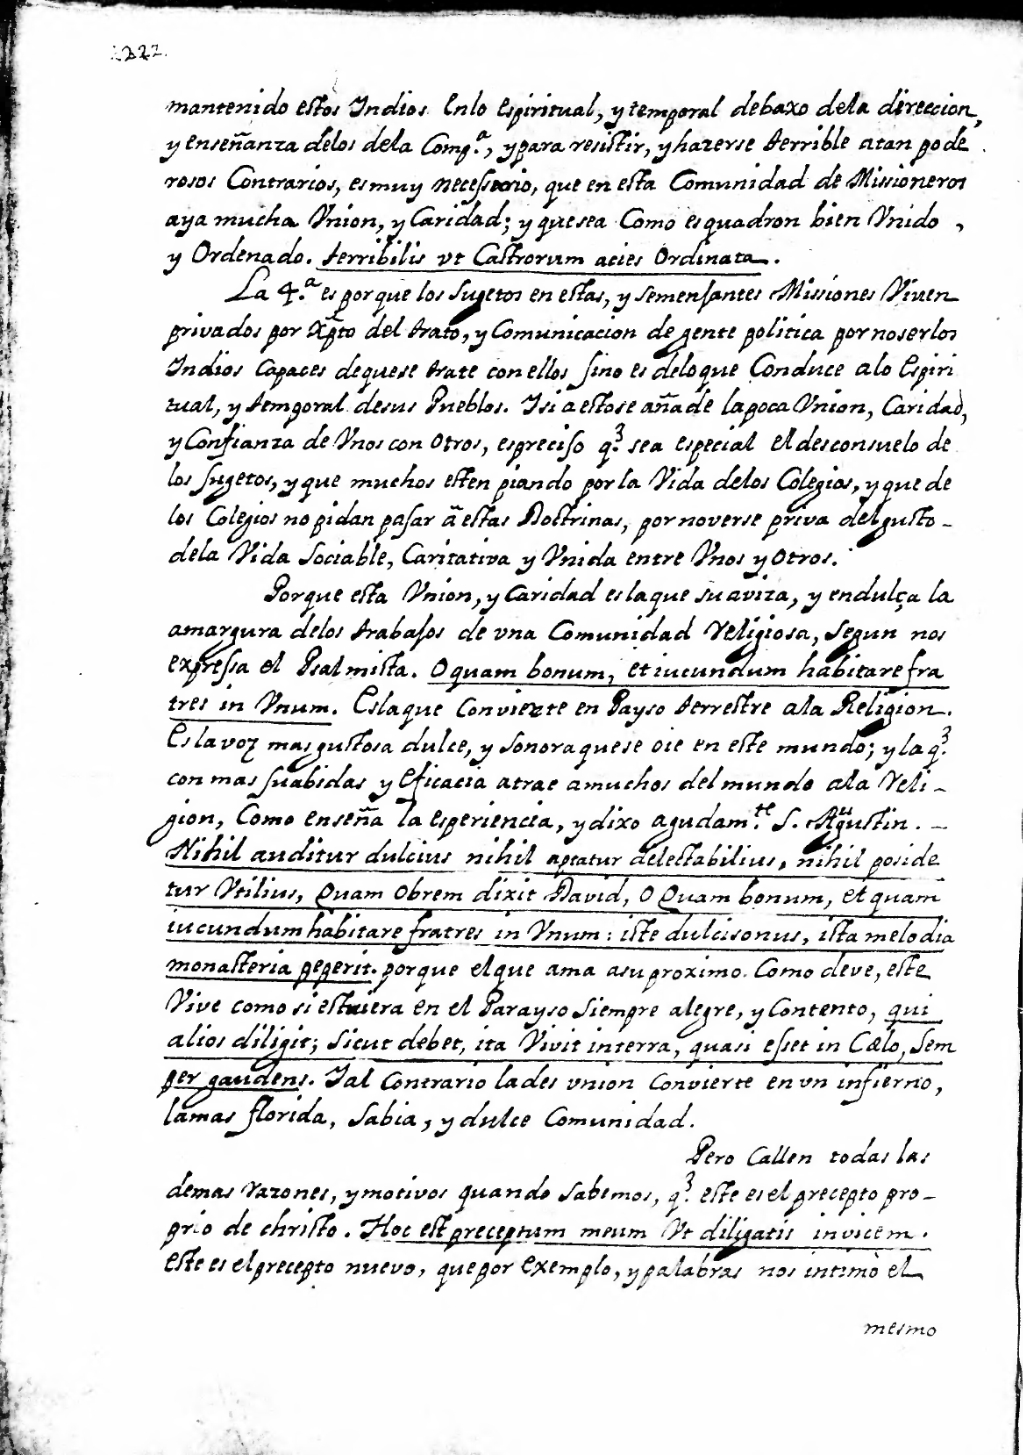 mantenido estos Indios Enlo Espiritual, y temporal debaxo dela direccion,
y enseñanza delos dela Comp.ª, y para resistir, y hazerse terrible atan pode
rosos Contrarios, es muy necessario, que en esta Comunidad de Missioneros
aya mucha Vnion, y Caridad; y que sea Como esquadron bien Vnido,
y Ordenado. terribilis vt Castrorum acies Ordinata.
La 4.ª es porque los sugetos en estas, y semenjantes Missiones Viven
privados por Xp̃to del trato, y Comunicacion de gente politica por no ser los
Indios Capaces de que se trate con ellos sino es delo que Conduce alo Espiri
tual, y temporal de sus Pueblos. I si a esto se añade la poca Vnion, Caridad,
y Confianza de Vnos con otros, es preciso q.ͤ sea especial el desconsuelo de
los sugetos, y que muchos esten piando por la Vida delos Colegios, y que de
los Colegios no pidan passar ã estas Doctrinas, por no verse priva del gusto
dela Vida Sociable, Caritativa y Vnida entre Vnos y Otros.
Porque esta Vnion, y Caridad es la que suaviza, y endulça la
amargura delos trabajos de vna Comunidad Religiosa, segun nos
expressa el Psalmista. O quam bonum, et iucundum habitare fra
tres in Vnum. Es la que Convierte en Payso terrestre ala Religion.
Es la voz mas gustosa dulce, y sonora que se oie en este mundo; y la q.ͤ
con mas suabidas y eficacia atrae a muchos del mundo ala Reli-
gion, Como enseña la esperiencia, y dixo agudam.te S. Agustin.
Nihil auditur dulcius nihil aptatur delectabilius, nihil poside
tur Vtilius, Quam Obrem dixit David, O Quam bonum, et quam
iucundum habitare fratres in Vnum: iste dulcisonus, ista melodia
monasteria peperit. porque el que ama a su proximo Como deve, este
Vive como si estuiera en el Parayso siempre alegre, y Contento, qui
alios diligit; sicut debet, ita Vivit in terra, quasi esset in Cælo, sem
per gaudens. I al Contrario la des vnion Convierte en vn infierno,
la mas florida, sabia, y dulce Comunidad.
Pero Callen todas las
demas razones, y motivos quando sabemos, q.ͤ este es el precepto pro-
prio de christo. Hoc est preceptum meum Vt diligatis invicem.
este es el precepto nuevo, que por exemplo, y palabras nos intimò el
mesmo